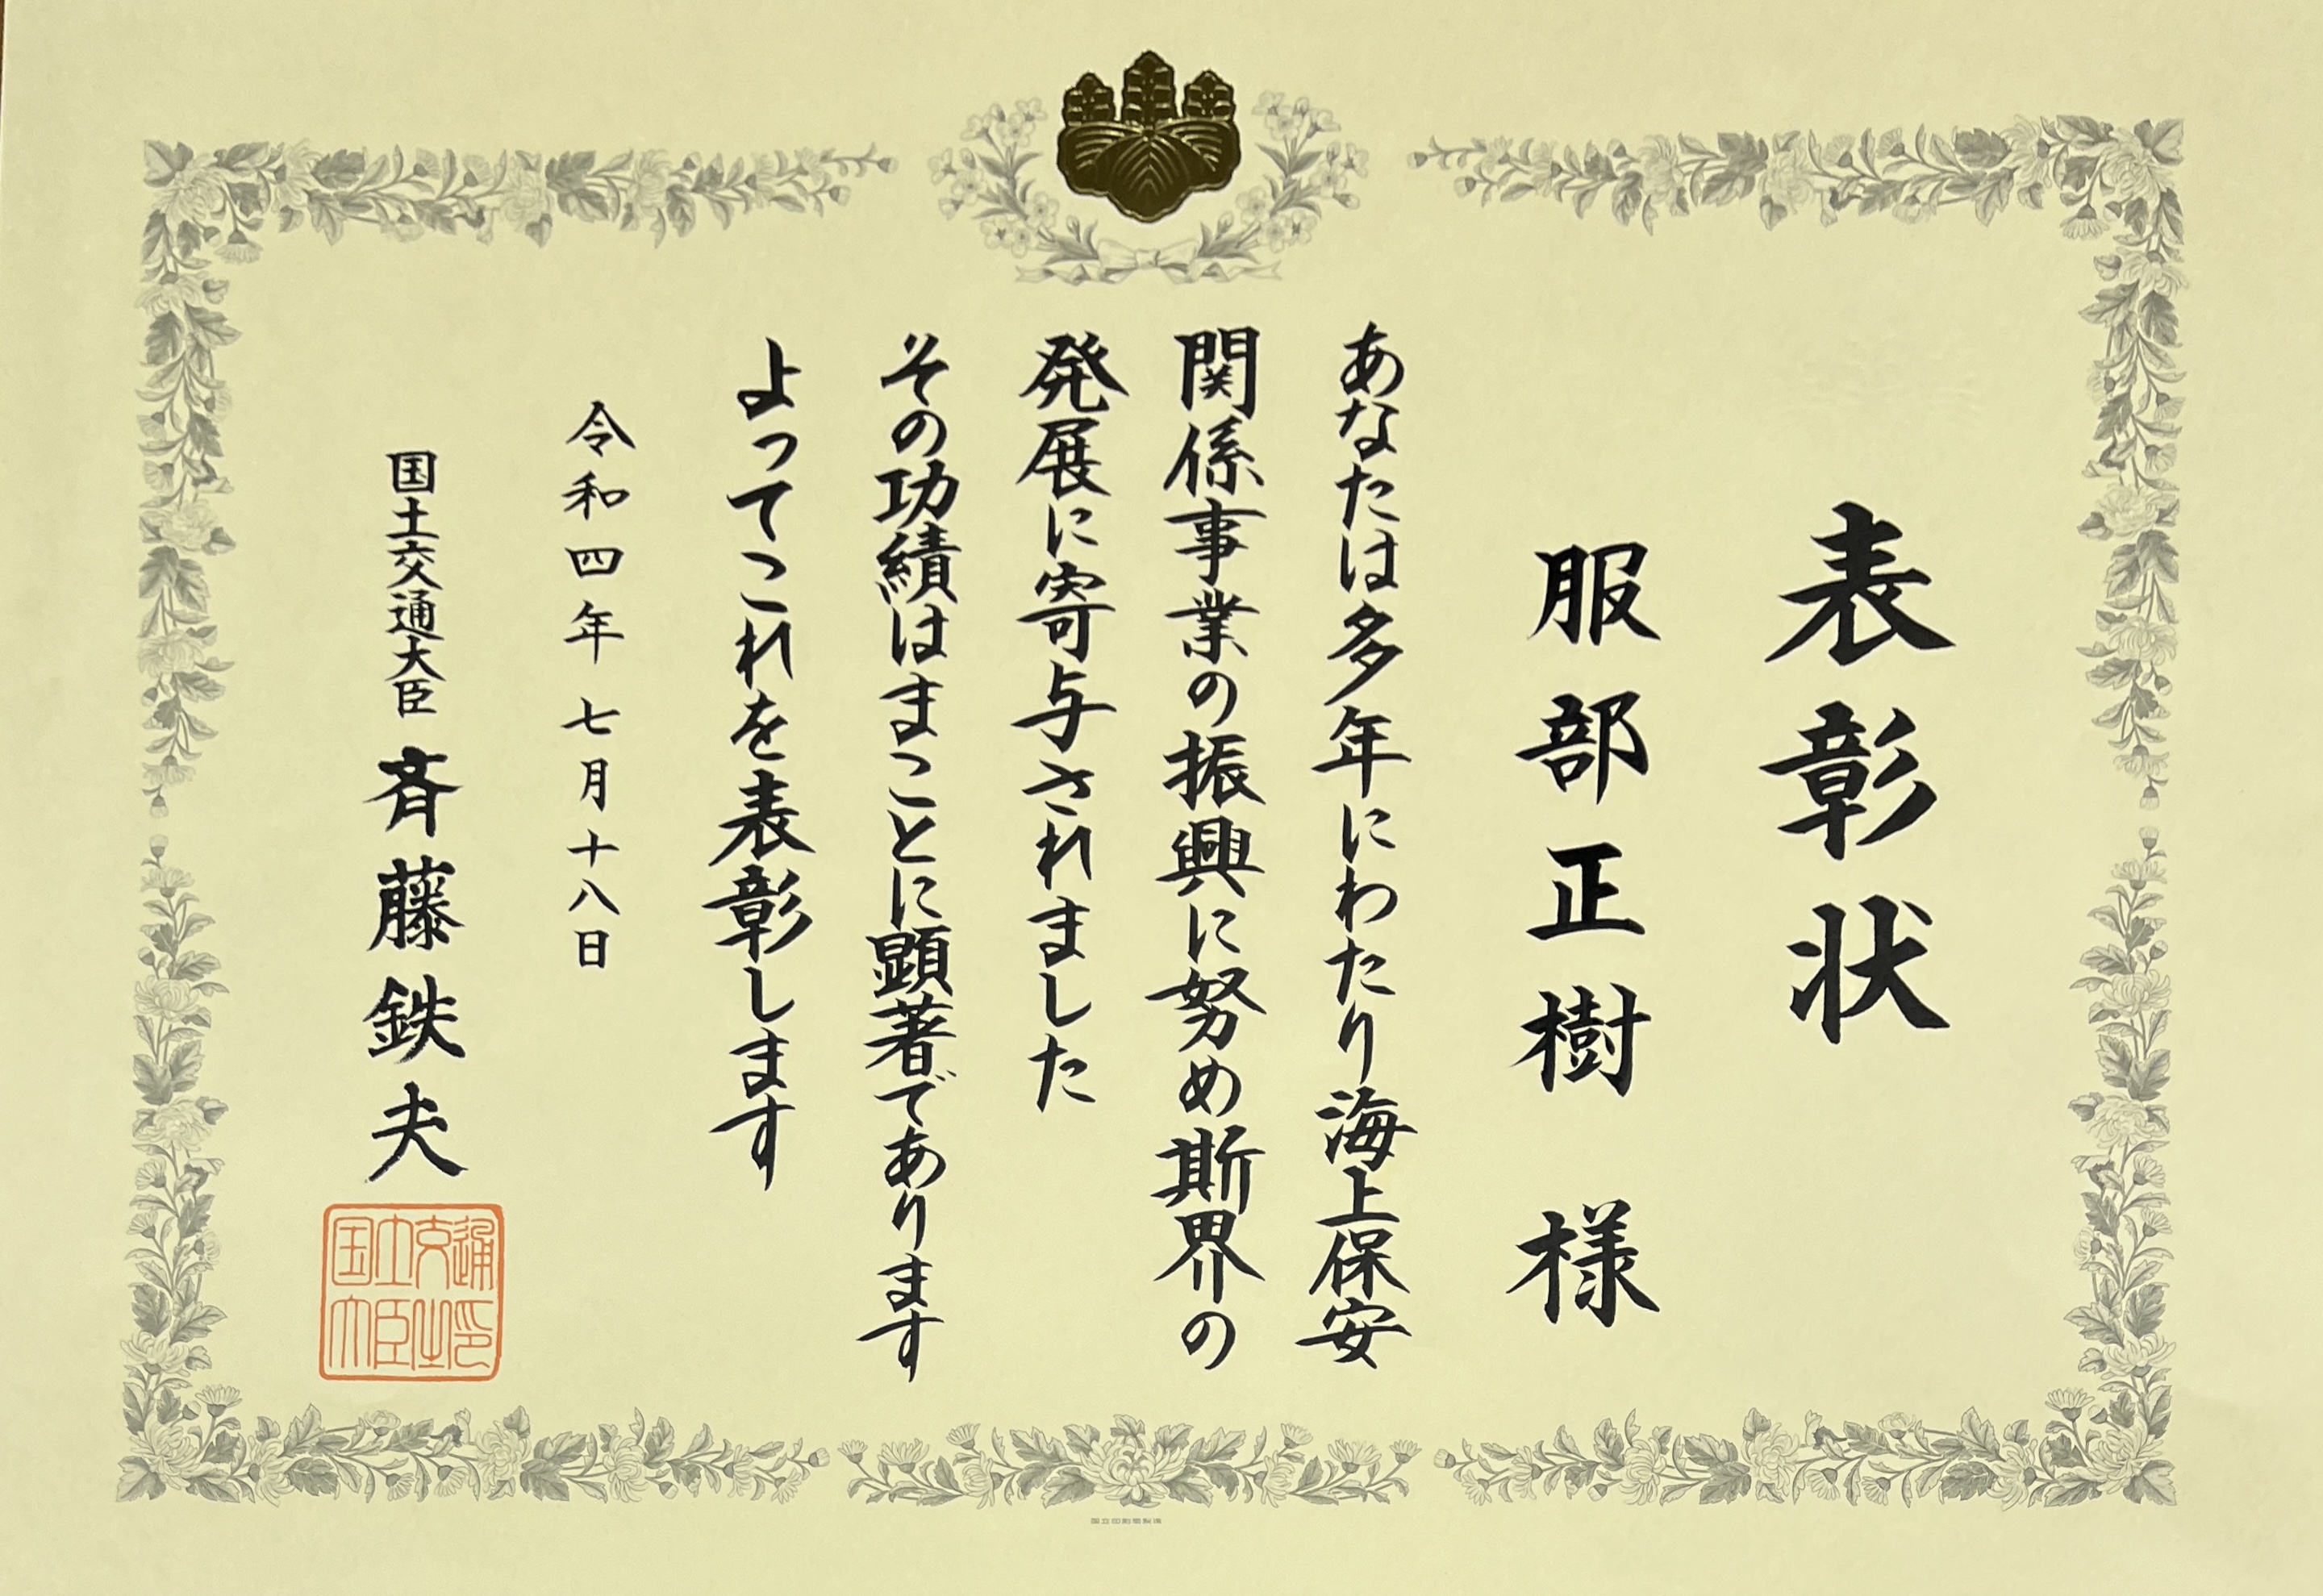 表彰状
服部正樹 様
あなたは多年にわたり海上保安
関係事業の振興に努め斯界の
発展に寄与されました
その功績はまことに顕著であります
よってこれを表彰します
令和四年七月十八日
国土交通大臣 斉藤鉄夫
国土交通
大臣之印
国立印刷局製造